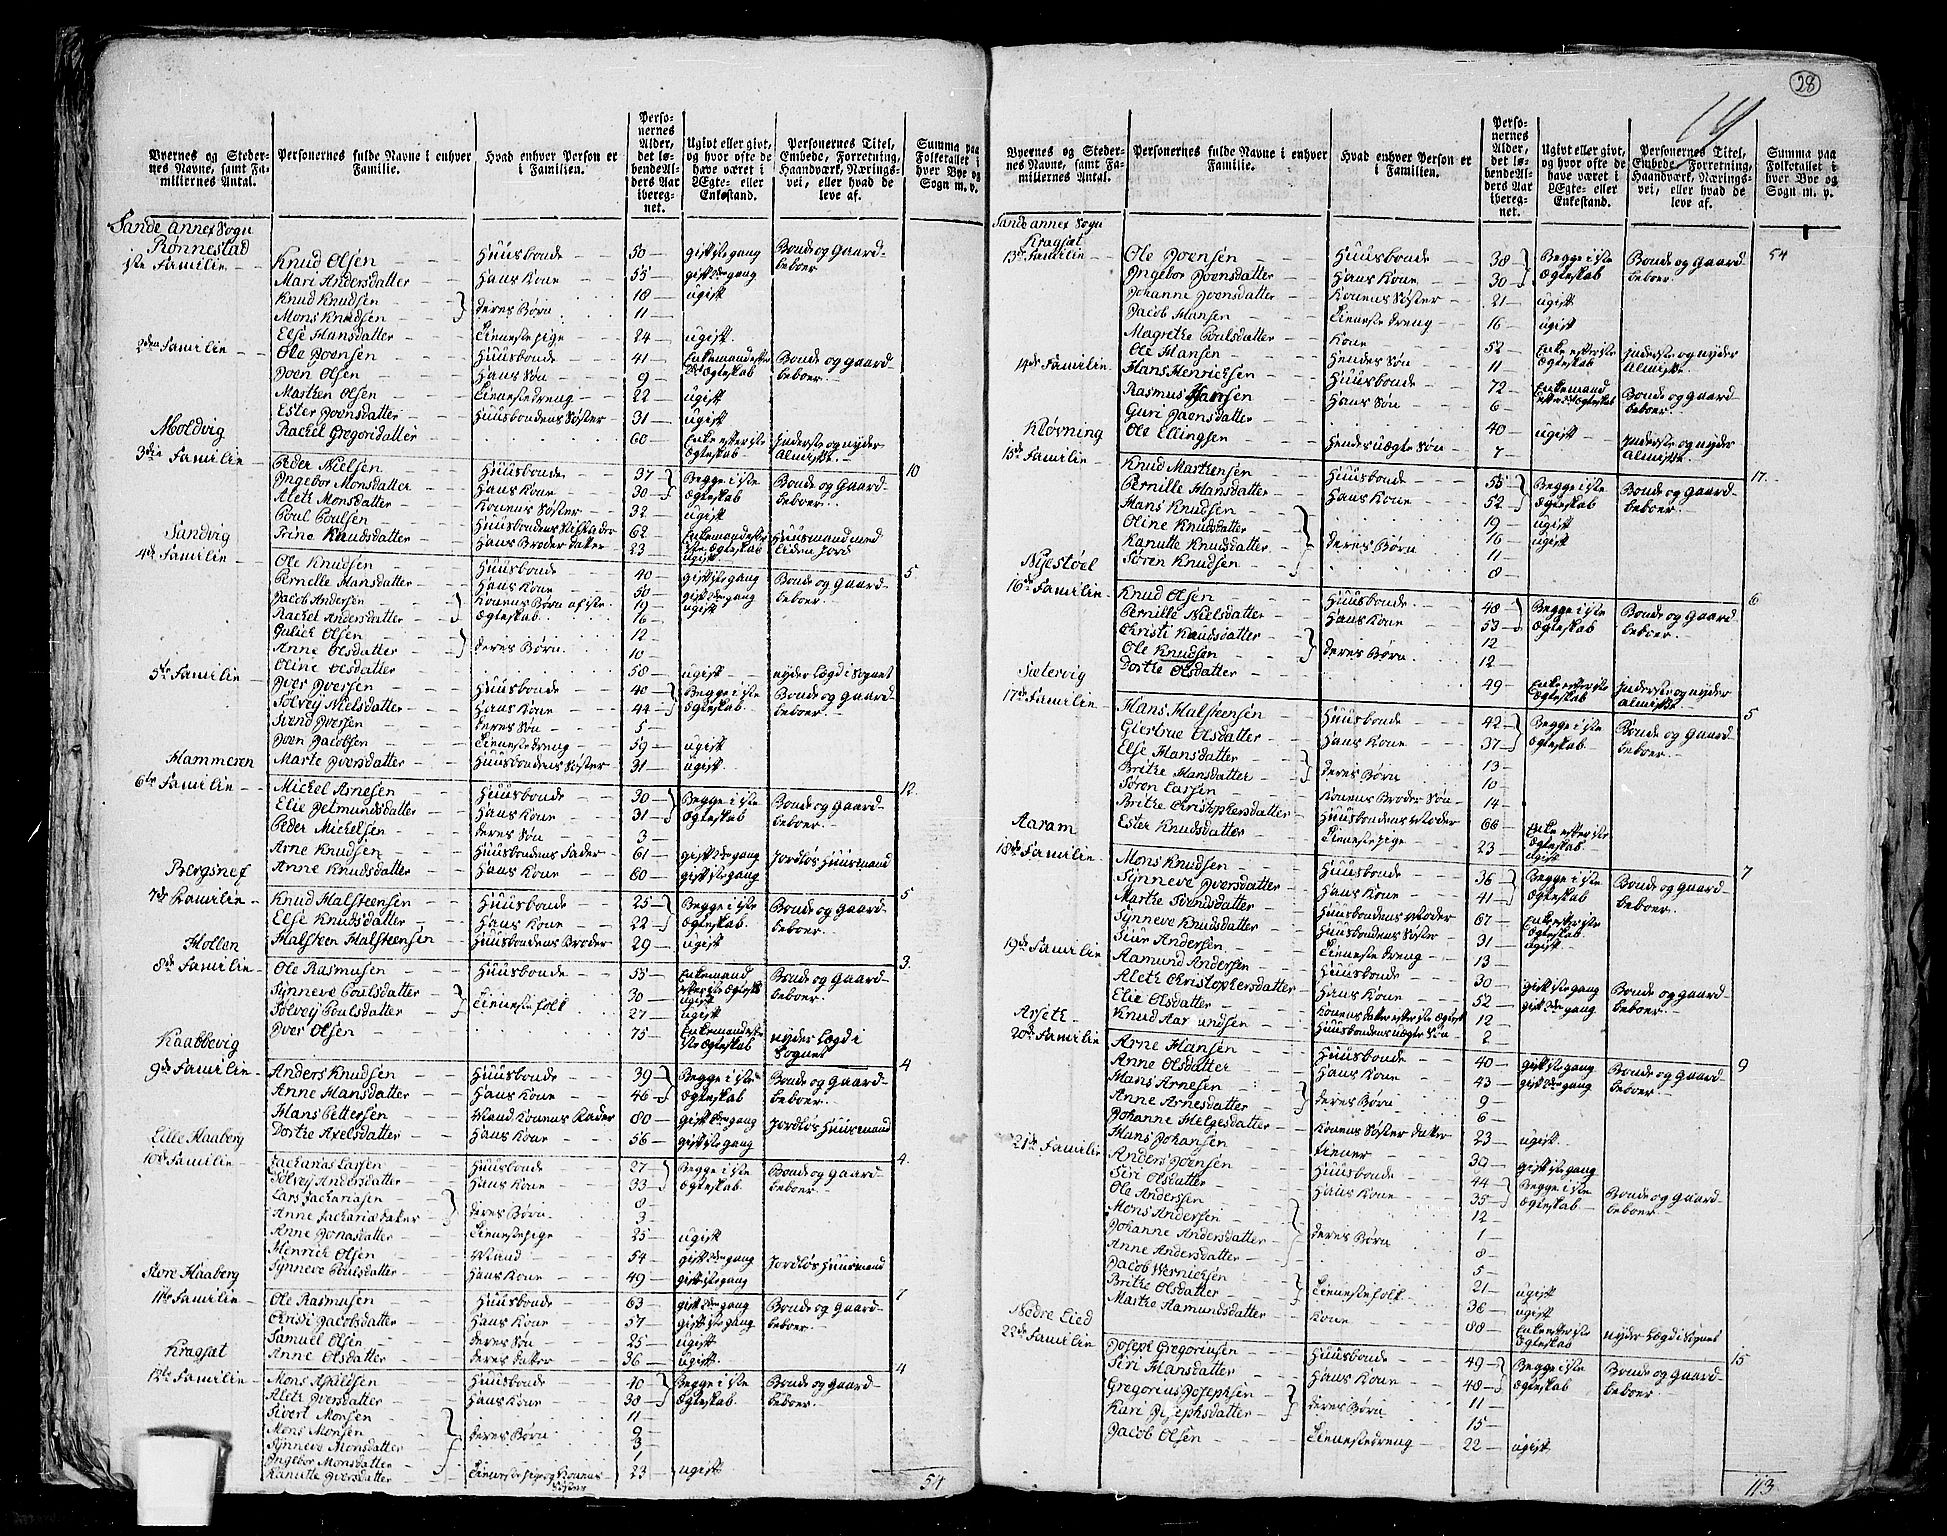 28
19
Byernes og Stedernes Navne, samt Familiernes Antal.
Personernes fulde Navne i enhver Familie.
Hvad enhver Person er i Familien.
Personernes Alder, det løbende Alders Aar iberegnet.
Ugivt eller givt, og hvor ofte de have været i Ægte- eller Enkestand.
Personernes Titel, Embede, Forretning, Haandværk, Næringsvei, eller hvad de leve af.
Summa paa Folketallet i hver Bye og Sogn m. v.
Sande annex Sogn
Rønnestad
1ste Familie Knud Olsen Huusbonde 50 gift 1ste gang Bonde og Gaardbeboer
Mari Andersdatter Hans Kone 55 gift 2de gang
Knud Knudsen } deres Børn 18 ugift
Mons Knudsen 11
Else Hansdatter Tienestepige 24 ugift
2den Familie Ole Joensen Huusbonde 41 Enkemand efter Ægteskab Bonde og Gaardbeboer
Joen Olsen Hans Søn 9
Marthen Olsen Tienestedreng 22 ugift
Ester Joensdatter Huusbondens Søster 31 ugift
Rachel Gregorisdatter 60 Enke efter 1ste Ægteskab Inderste og nyder Almisse 10
Moldvig
3die Familie Peder Nielsen Huusbonde 37 } Begge i 1ste Ægteskab Bonde og Gaardbeboer
Ingebor Monsdatter Hans Kone 30
Aleth Monsdatter Konens Søster 32 ugift
Poul Poulsen Huusbondens Stiffader 62 Enkemand efter 1ste Ægteskab Huusmand med liden Jord
Trine Knudsdatter Hans Broder datter 23 ugift 5
Sandvig
4de Familie Ole Knudsen Huusbonde 40 gift 1ste gang Bonde og Gaardbeboer
Pernille Hansdatter Hans Kone 50 gift 2de gang
Jacob Andersen } Konens Børn af 1ste Ægteskab 19 ugift
Rachel Andersdatter 16
Gulich Olsen } deres Børn 12
Anne Olsdatter 10
Oline Olsdatter 58 ugift nyder Lægd i Sognet
5te Familie Iver Iversen Huusbonde 40 } Begge i 1ste Ægteskab Bonde og Gaardbeboer
Sølvey Nielsdatter Hans Kone 44
Svend Iversen deres Søn 5
Joen Jacobsen Tienestedreng 59 ugift
Marte Iversdatter Huusbondens Søster 31 ugift 12
Hammeren
6te Familie Michel Arnesen Huusbonde 30 } Begge i 1ste Ægteskab Bonde og Gaardbeboer
Elie Jetmundsdatter Hans Kone 31
Peder Michelsen deres Søn 3
Arne Knudsen Huusbondens Fader 61 gift 2de gang Jordløs Huusmand
Anne Knudsdatter Hans Kone 60 gift 1ste gang 5
Bergsnef
7de Familie Knud Halsteensen Huusbonde 25 } Begge i 1ste Ægteskab Bonde og Gaardbeboer
Else Knudsdatter Hans Kone 22
Halsteen Halsteensen Huusbondens Broder 29 ugift 3
Hollen
8de Familie Ole Rasmusen Huusbonde 55 Enkemand efter 1ste Ægtesk Bonde og Gaardbeboer
Synneve Poulsdatter } Tienestefolk 30 ugift
Sølvey Poulsdatter 27 ugift
Iver Olsen 75 Enkemand efter 1ste Ægteskab nyder Lægd i Sognet 4
Kaabbevig
9de Familie Anders Knudsen Huusbonde 39 } Begge i 1ste Ægteskab Bonde og Gaardbeboer
Anne Hansdatter Hans Kone 46
Hans Pettersen Mand Konens Fader 80 gift 2de gang Jordløs Huusmand
Dorthe Axelsdatter Hans Kone 56 gift 1ste gang 4
Lille Haaberg
10de Familie Zacharias Larsen Huusbonde 27 } Begge i 1ste Ægteskab Bonde og Gaardbeboer
Sølvey Andersdatter Hans Kone 33
Lars Zachariasen } deres Børn 8
Anne Zachariæ datter 3
Anne Jonasdatter Tienestepige 25 ugift
Henrich Olsen Mand 54 gift 2de gang Jordløs Huusmand
Synneve Poulsdatter Hans Kone 49 gift 1ste gang 7
Store Haaberg
11te Familie Ole Rasmusen Huusbonde 63 gift 2de gang Bonde og Gaardbeboer
Christi Jacobsdatter Hans Kone 57 gift 1ste gang
Samuel Olsen deres Søn 25 ugift
Anne Olsdatter deres datter 36 ugift 4
Kragsæt
12te Familie Mons Huusbonde 40 } Begge i 1ste Ægteskab Bonde og Gaardbeboer
Aleth Iversdatter Hans Kone 38
Sivert Monsen } deres Børn 11
Mons Monsen 9
Synneve Monsdatter 3
Ingebor Monsdatter 1
Kanutte Iversdatter Tienestepige og Konens Søster 23 ugift
54
Byernes og Stedernes Navne, samt Familiernes Antal.
Personernes fulde Navne i enhver Familie.
Hvad enhver Person er i Familien.
Personernes Alder, det løbende Alders Aar iberegnet.
Ugivt eller givt, og hvor ofte de have været i Ægte- eller Enkestand.
Personernes Titel, Embede, Forretning, Haandværk, Næringsvei, eller hvad de leve af.
Summa paa Folketallet i hver Bye og Sogn m. v.
Sande annex Sogn
Kragsæt
13de Familie Ole Joensen Huusbonde 38 } Begge i 1ste Ægteskab Bonde og Gaardbeboer 54
Ingebor Joensdatter Hans Kone 30
Johanne Joensdatter Konens Søster 21 ugift
Jacob Hansen Tienestedreng 16 ugift
Magrethe Poulsdatter Kone 52 Enke efter 1ste Ægteskab Inderste og nyder Almisse
Ole Hansen Hendes Søn 11
14de Familie Hans Henrichsen Huusbonde 72 Enkemand efter Ægteskab Bonde og Gaardbeboer
Rasmus Hansen Hans Søn 6
Guri Joensdatter 40 ugift Inderste og nyder Almisse
Ole Ellingsen Hendes uægte Søn 7 17
Kløvning
15de Familie Knud Marthensen Huusbonde 55 } Begge i 1ste Ægteskab Bonde og Gaardbeboer
Pernille Hansdatter Hans Kone 52
Hans Knudsen } deres Børn 19 ugift
Oline Knudsdatter 16 ugift
Kanutte Knudsdatter 11
Søren Knudsen 8 6
Nyestøel
16de Familie Knud Olsen Huusbonde 48 } Begge i 1ste Ægteskab Bonde og Gaardbeboer
Pernille Nielsdatter Hans Kone 53
Christi Knudsdatter } deres Børn 12
Ole Knudsen 12
Dorthe Olsdatter 49 Enke efter 1ste Ægteskab Inderste og nyder almisse 5
Sætervig
17de Familie Hans Halsteensen Huusbonde 42 } Begge i 1ste Ægteskab Bonde og Gaardbeboer
Giertrue Olsdatter Hans Kone 37
Else Hansdatter } deres Børn 13
Brithe Hansdatter 10
Søren Larsen Konens Broder Søn 14
Brithe Christophersdatter Huusbondens Moder 66 Enke efter 1ste Ægteskab
Ester Knudsdatter Tienestepige 23 ugift 7
Aaram
18de Familie Mons Knudsen Huusbonde 36 } Begge i 1ste Ægteskab Bonde og Gaardbeboer
Synneve Iversdatter Hans Kone 41
Marthe Svendsdatter Huusbondens Moder 67 Enke efter 1ste Ægteskab
Synneve Knudsdatter Huusbondens Søster 31 ugift
Siur Andersen Tienestedreng 13
19de Familie Aamund Andersen Huusbonde 30 gift 1ste gang Bonde og Gaardbeboer
Aleth Christophersdatter Hans Kone 52 gift 2de gang
Elie Olsdatter Konens datter efter 1ste Ægtesk 12
Knud Aamundsen Huusbondens uægte Søn 2 9
Arseth
20de Familie Arne Hansen Huusbonde 40 gift 1ste gang Bonde og Gaardbeboer
Anne Olsdatter Hans Kone 43 gift 2de gang
Hans Arnesen } deres Børn 9
Anne Arnesdatter 6
Johanne Helgesdatter Konens Søster datter 23 ugift
Hans Johansen tiener 30 gift 1ste gang
21de Familie Anders Joensen Huusbonde 44 } Begge i 1ste Ægteskab Bonde og Gaardbeboer
Siri Olsdatter Hans Kone 35
Ole Anderssen } deres Børn 12
Mons Andersen 1
Johanne Andersdatter 8
Anne Andersdatter 5
Jacob Wernichsen } Tienestefolk 21 ugift
Brithe Olsdatter 36 ugift
Marthe Aamundsdatter Kone 88 Enke efter 1ste Ægteskab nyder Lægd i Sognet 15
Nedre Lied
22de Familie Joseph Gregoriusen Huusbonde 49 } Begge i 1ste Ægteskab Bonde og Gaardbeboer
Siri Hansdatter Hans Kone 48
Gregorius Josephsen } deres Børn 11
Kari Josephsdatter 15
Jacob Olsen Tienestedreng 22 ugift
113